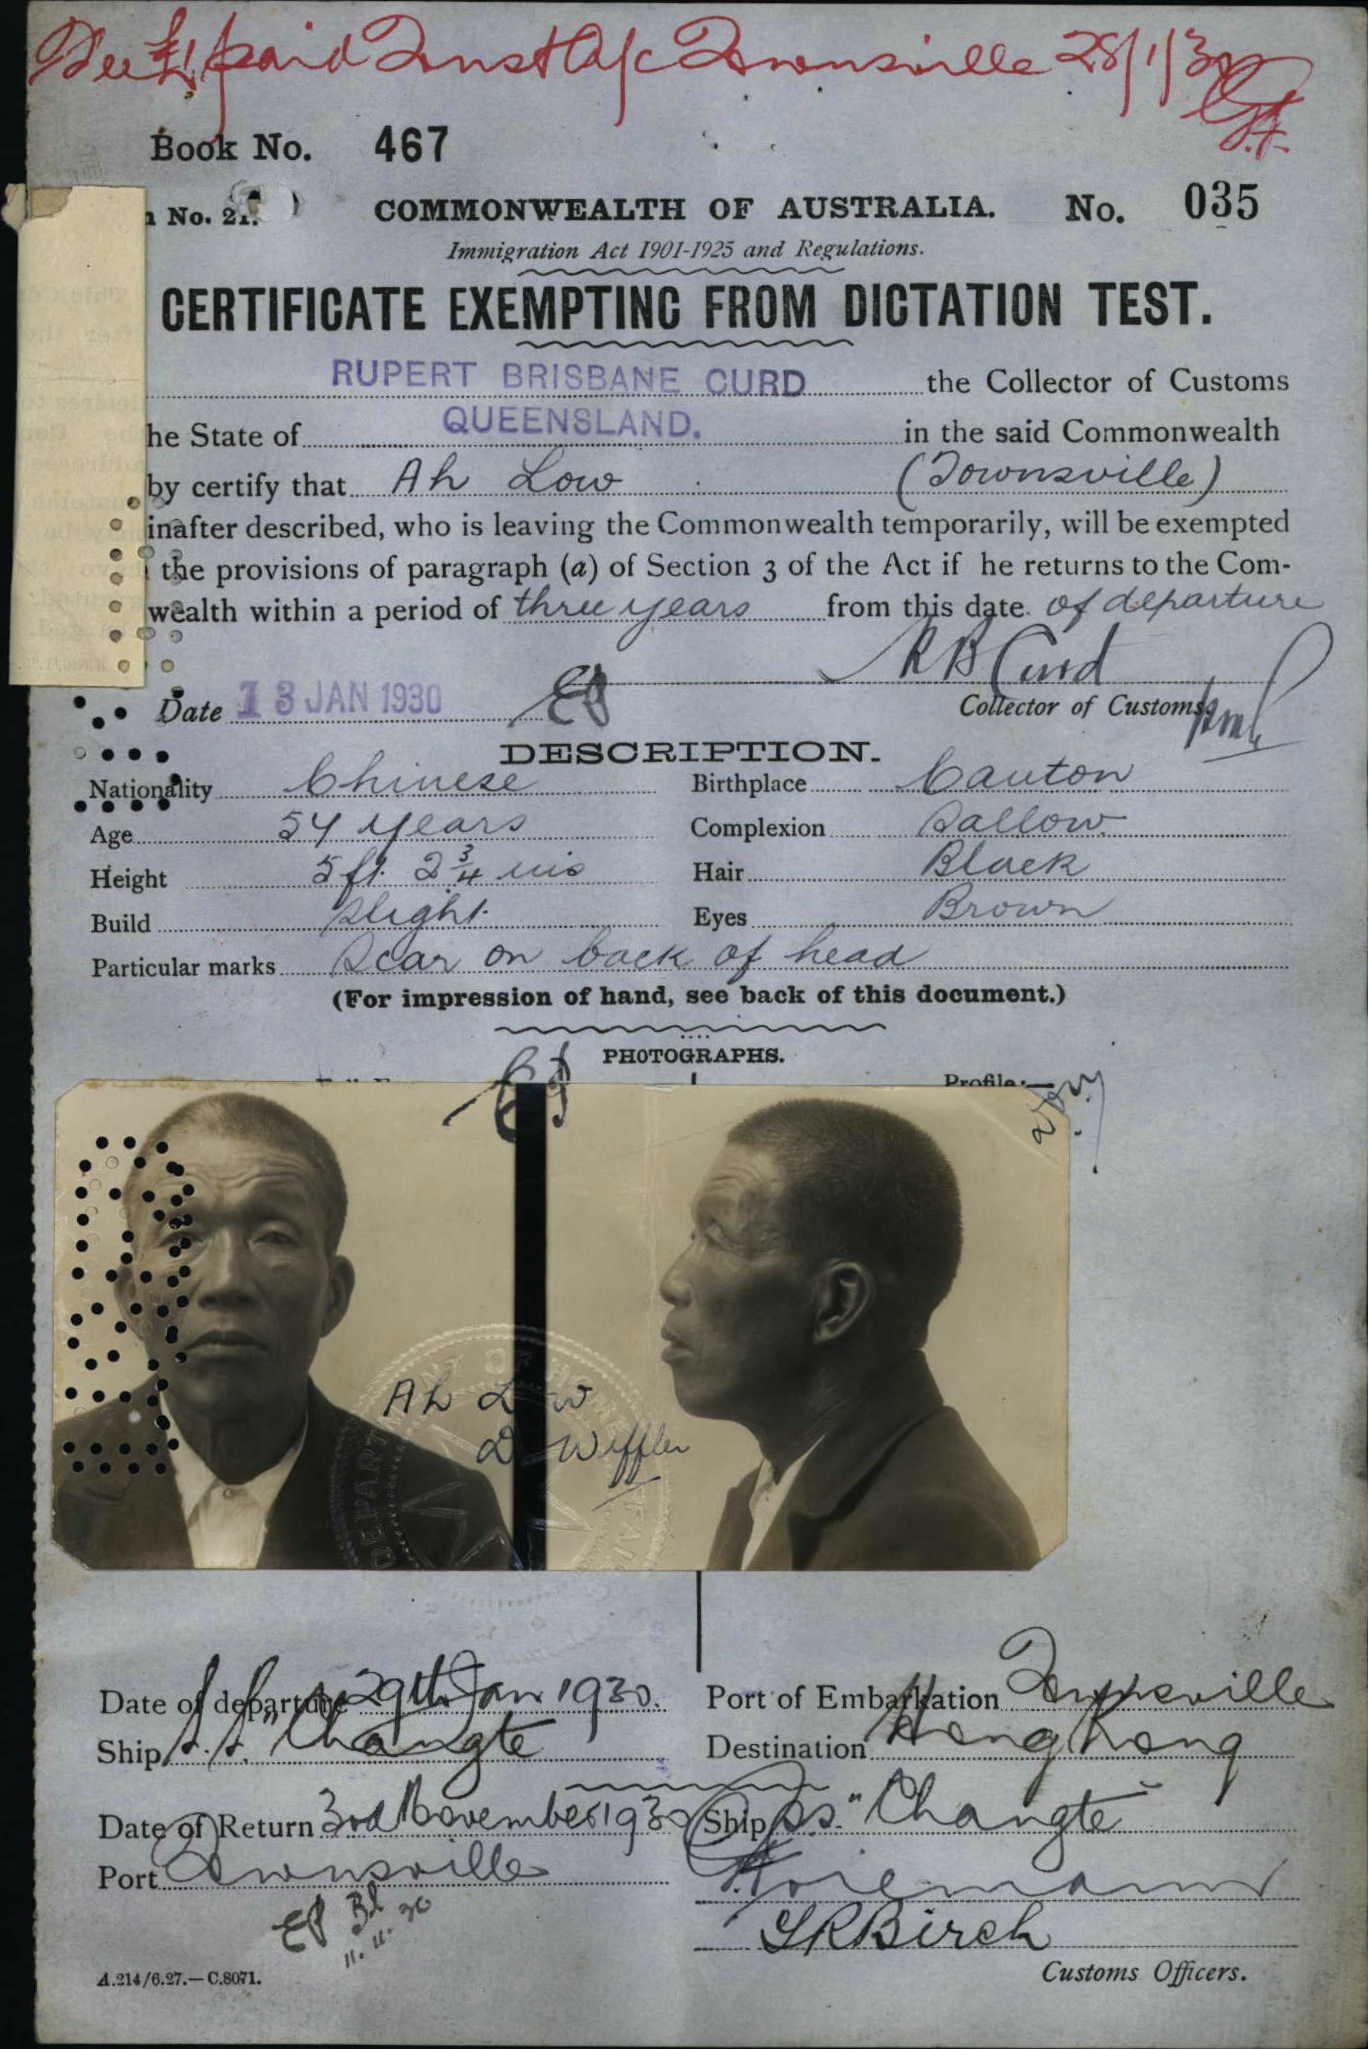 Fee £1 paid Trust A/c Townsville 28/1/30
Book No. 467
No. 21. COMMONWEALTH OF AUSTRALIA. No. 035
Immigration Act 1901-1925 and Regulations.
CERTIFICATE EXEMPTING FROM DICTATION TEST.
RUPERT BRISBANE CURD the Collector of Customs
he State of QUEENSLAND. in the said Commonwealth
by certify that Ah Low (Townsville)
inafter described, who is leaving the Commonwealth temporarily, will be exempted
the provisions of paragraph (a) of Section 3 of the Act if he returns to the Com-
wealth within a period of three years from this date of departure
R B Curd
Date 13 JAN 1930 Collector of Customs
DESCRIPTION.
Nationality Chinese Birthplace Canton
Age 54 years Complexion Sallow
Height 5 ft. 2 3/4 ins Hair Black
Build Slight Eyes Brown
Particular marks Scar on back of head
(For impression of hand, see back of this document.)
PHOTOGRAPHS.
Profile:—
Ah Low
Date of departure 29th Jan 1930. Port of Embarkation Townsville
Ship S.S. "Changte Destination Hong Kong
Date of Return 3rd November 1930 Ship S.S. "Changte"
Port Townsville
EP
11.11.30
G R Birch
A.214/6.27.—C.8071. Customs Officers.